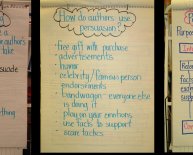 How do authors use
persuasion?
• free gift with purchase
• advertisements
• humor
• celebrity/famous person
endorsements
• bandwagon - everyone else
is doing it
• play on your emotions
• use facts to support
• scare tactics